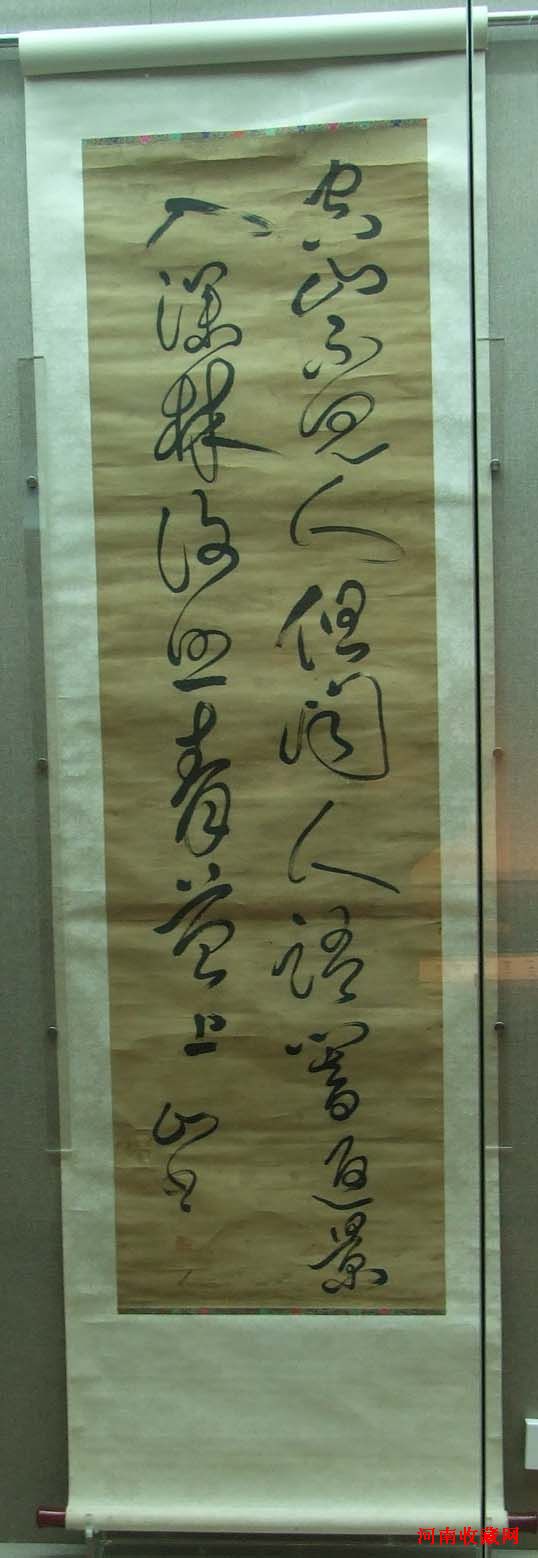 空山不見人但聞人語響返景
入深林復照青苔上 山
河南收藏网